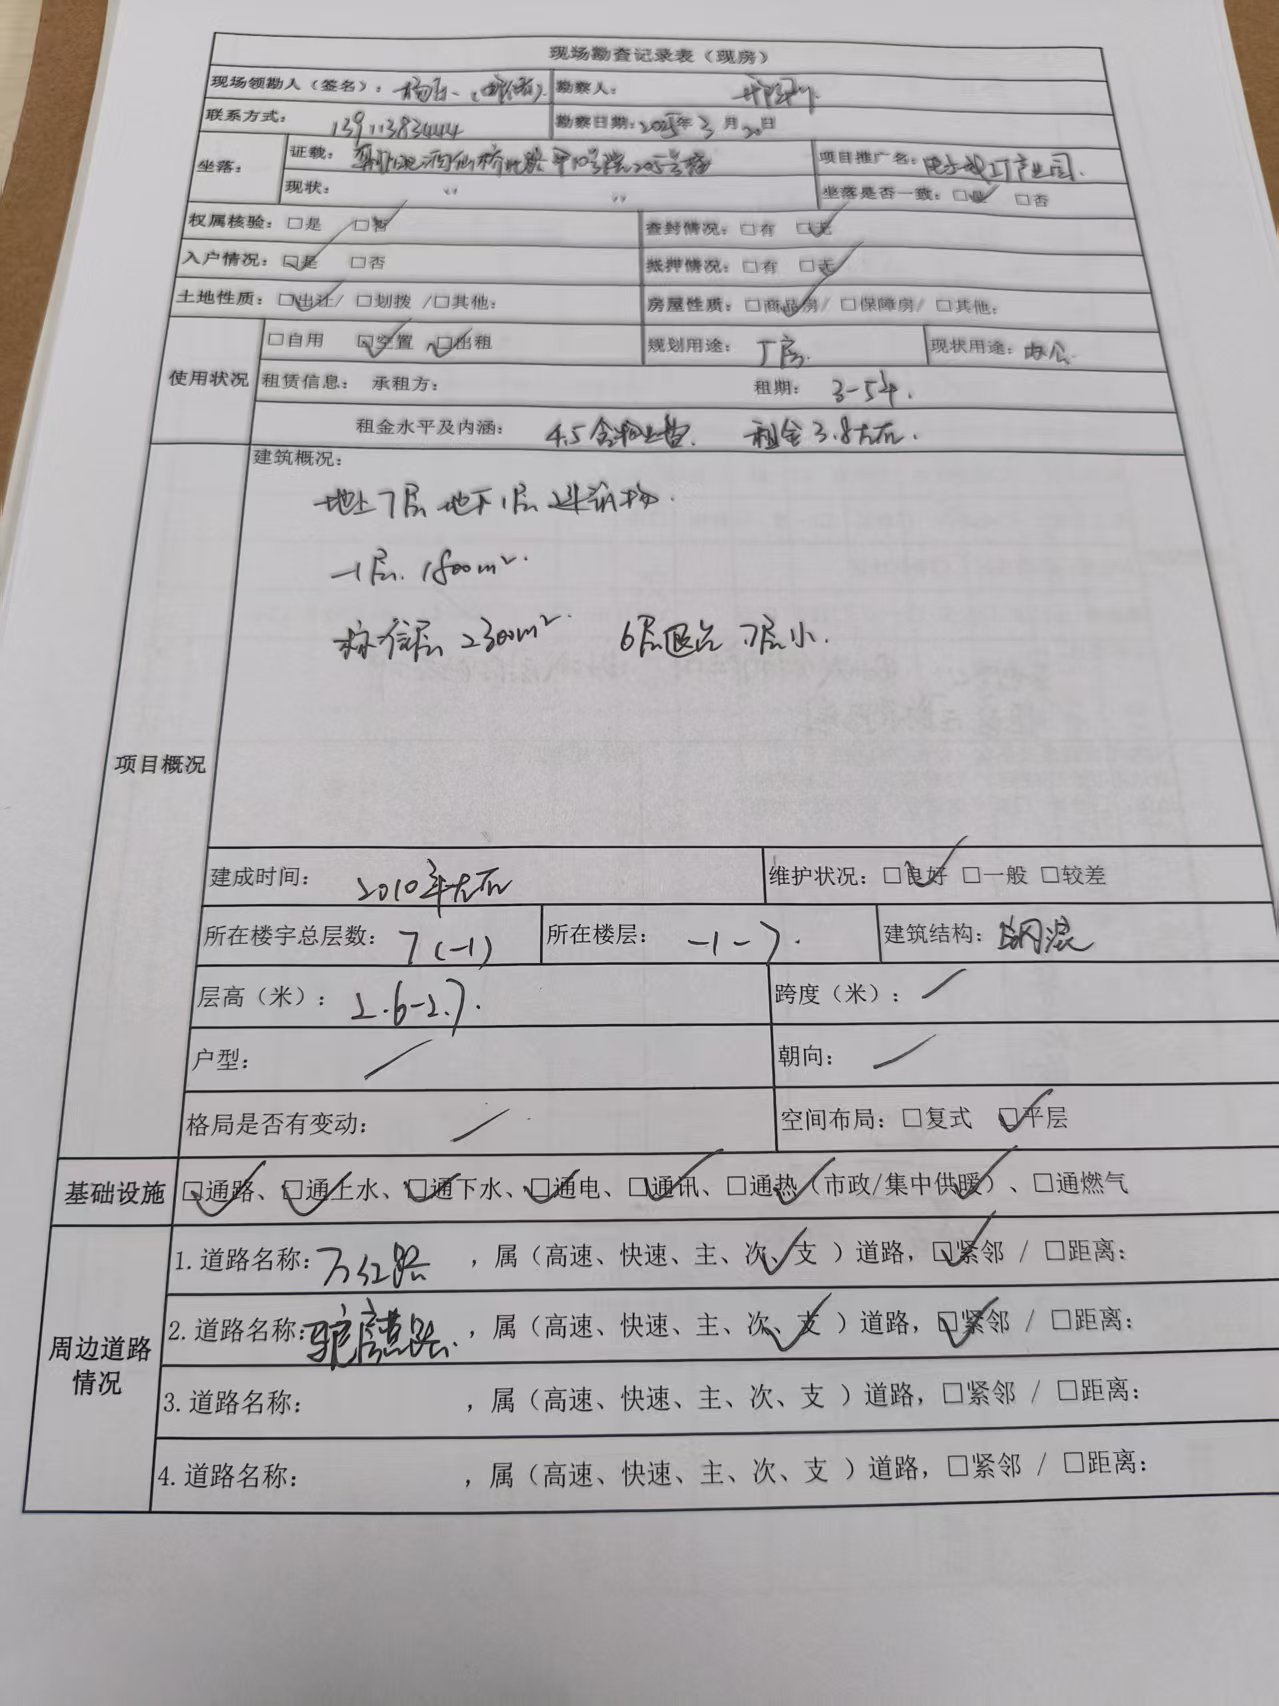 现场勘查记录表（现房）
现场领勘人（签名）： 勘察人：
联系方式： 13911383444 勘察日期：2025年3月20日
坐落： 证载： 酒仙桥北路甲10号院205号楼 项目推广名：电子城IT产业园
现状： 〃 〃 坐落是否一致：☑是 □否
权属核验：□是 ☑否 查封情况：□有 ☑无
入户情况：☑是 □否 抵押情况：□有 ☑无
土地性质：☑出让/ □划拨 /□其他： 房屋性质：☑商品房/ □保障房/ □其他：
使用状况 □自用 ☑空置 ☑出租 规划用途：厂房. 现状用途：办公.
租赁信息： 承租方： 租期： 3-5年.
租金水平及内涵： 4.5含物业费. 租金3.8左右.
项目概况 建筑概况：
地上7层 地下1层 建筑物.
-1层. 1800m².
标准层 2300m². 6层退台 7层小.
建成时间： 2010年左右 维护状况：☑良好 □一般 □较差
所在楼宇总层数： 7(-1) 所在楼层： -1-7. 建筑结构：钢混
层高（米）： 2.6-2.7. 跨度（米）： /
户型： / 朝向： /
格局是否有变动： / 空间布局：□复式 ☑平层
基础设施 ☑通路、☑通上水、☑通下水、☑通电、☑通讯、□通热✓（市政/集中供暖✓）、□通燃气
周边道路情况 1.道路名称：万红路 ，属（高速、快速、主、次、✓支 ）道路，☑紧邻 / □距离：
2.道路名称：驼房营路. ，属（高速、快速、主、次、✓支 ）道路，☑紧邻 / □距离：
3.道路名称： ，属（高速、快速、主、次、支 ）道路，□紧邻 / □距离：
4.道路名称： ，属（高速、快速、主、次、支 ）道路，□紧邻 / □距离：